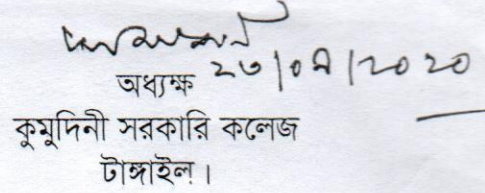 ২৩/০৯/২০২০
অধ্যক্ষ
কুমুদিনী সরকারি কলেজ
টাঙ্গাইল।